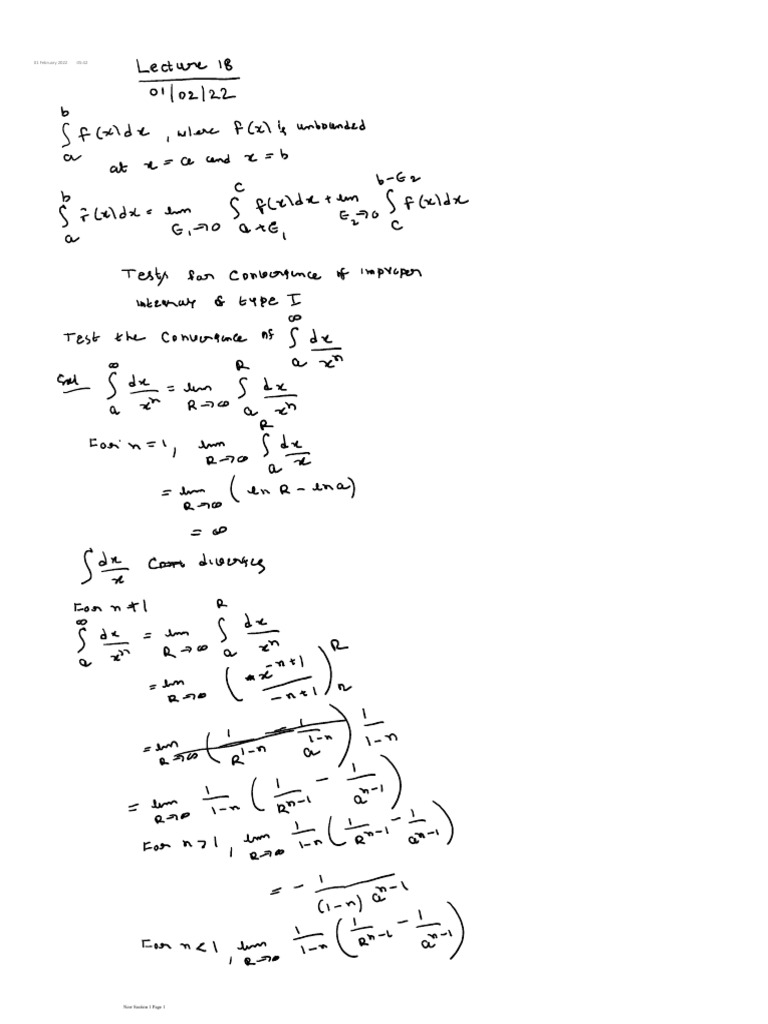 01 February 2022
Lecture 18
01/02/22
∫_a^b f(x)dx, where f(x) is unbounded
at x = a and x = b
∫_a^b f(x)dx = lim_{ε₁→0} ∫_{a+ε₁}^c f(x)dx + lim_{ε₂→0} ∫_c^{b-ε₂} f(x)dx
Tests for Convergence of improper
integrals of type I
Test the Convergence of ∫_a^∞ dx/x^n
Sol ∫_a^∞ dx/x^n = lim_{R→∞} ∫_a^R dx/x^n
For n=1, lim_{R→∞} ∫_a^R dx/x
= lim_{R→∞} (ln R - ln a)
= ∞
∫ dx/x diverges
For n ≠ 1
∫_a^∞ dx/x^n = lim_{R→∞} ∫_a^R dx/x^n
= lim_{R→∞} (x^{-n+1}/(-n+1))_n^R
= lim_{R→∞} (1/R^{1-n} - 1/a^{1-n}) 1/(1-n)
= lim_{R→∞} 1/(1-n) (1/R^{n-1} - 1/a^{n-1})
For n>1, lim_{R→∞} 1/(1-n) (1/R^{n-1} - 1/a^{n-1})
= - 1/((1-n) a^{n-1})
For n<1, lim_{R→∞} 1/(1-n) (1/R^{n-1} - 1/a^{n-1})
New Section 1 Page 1